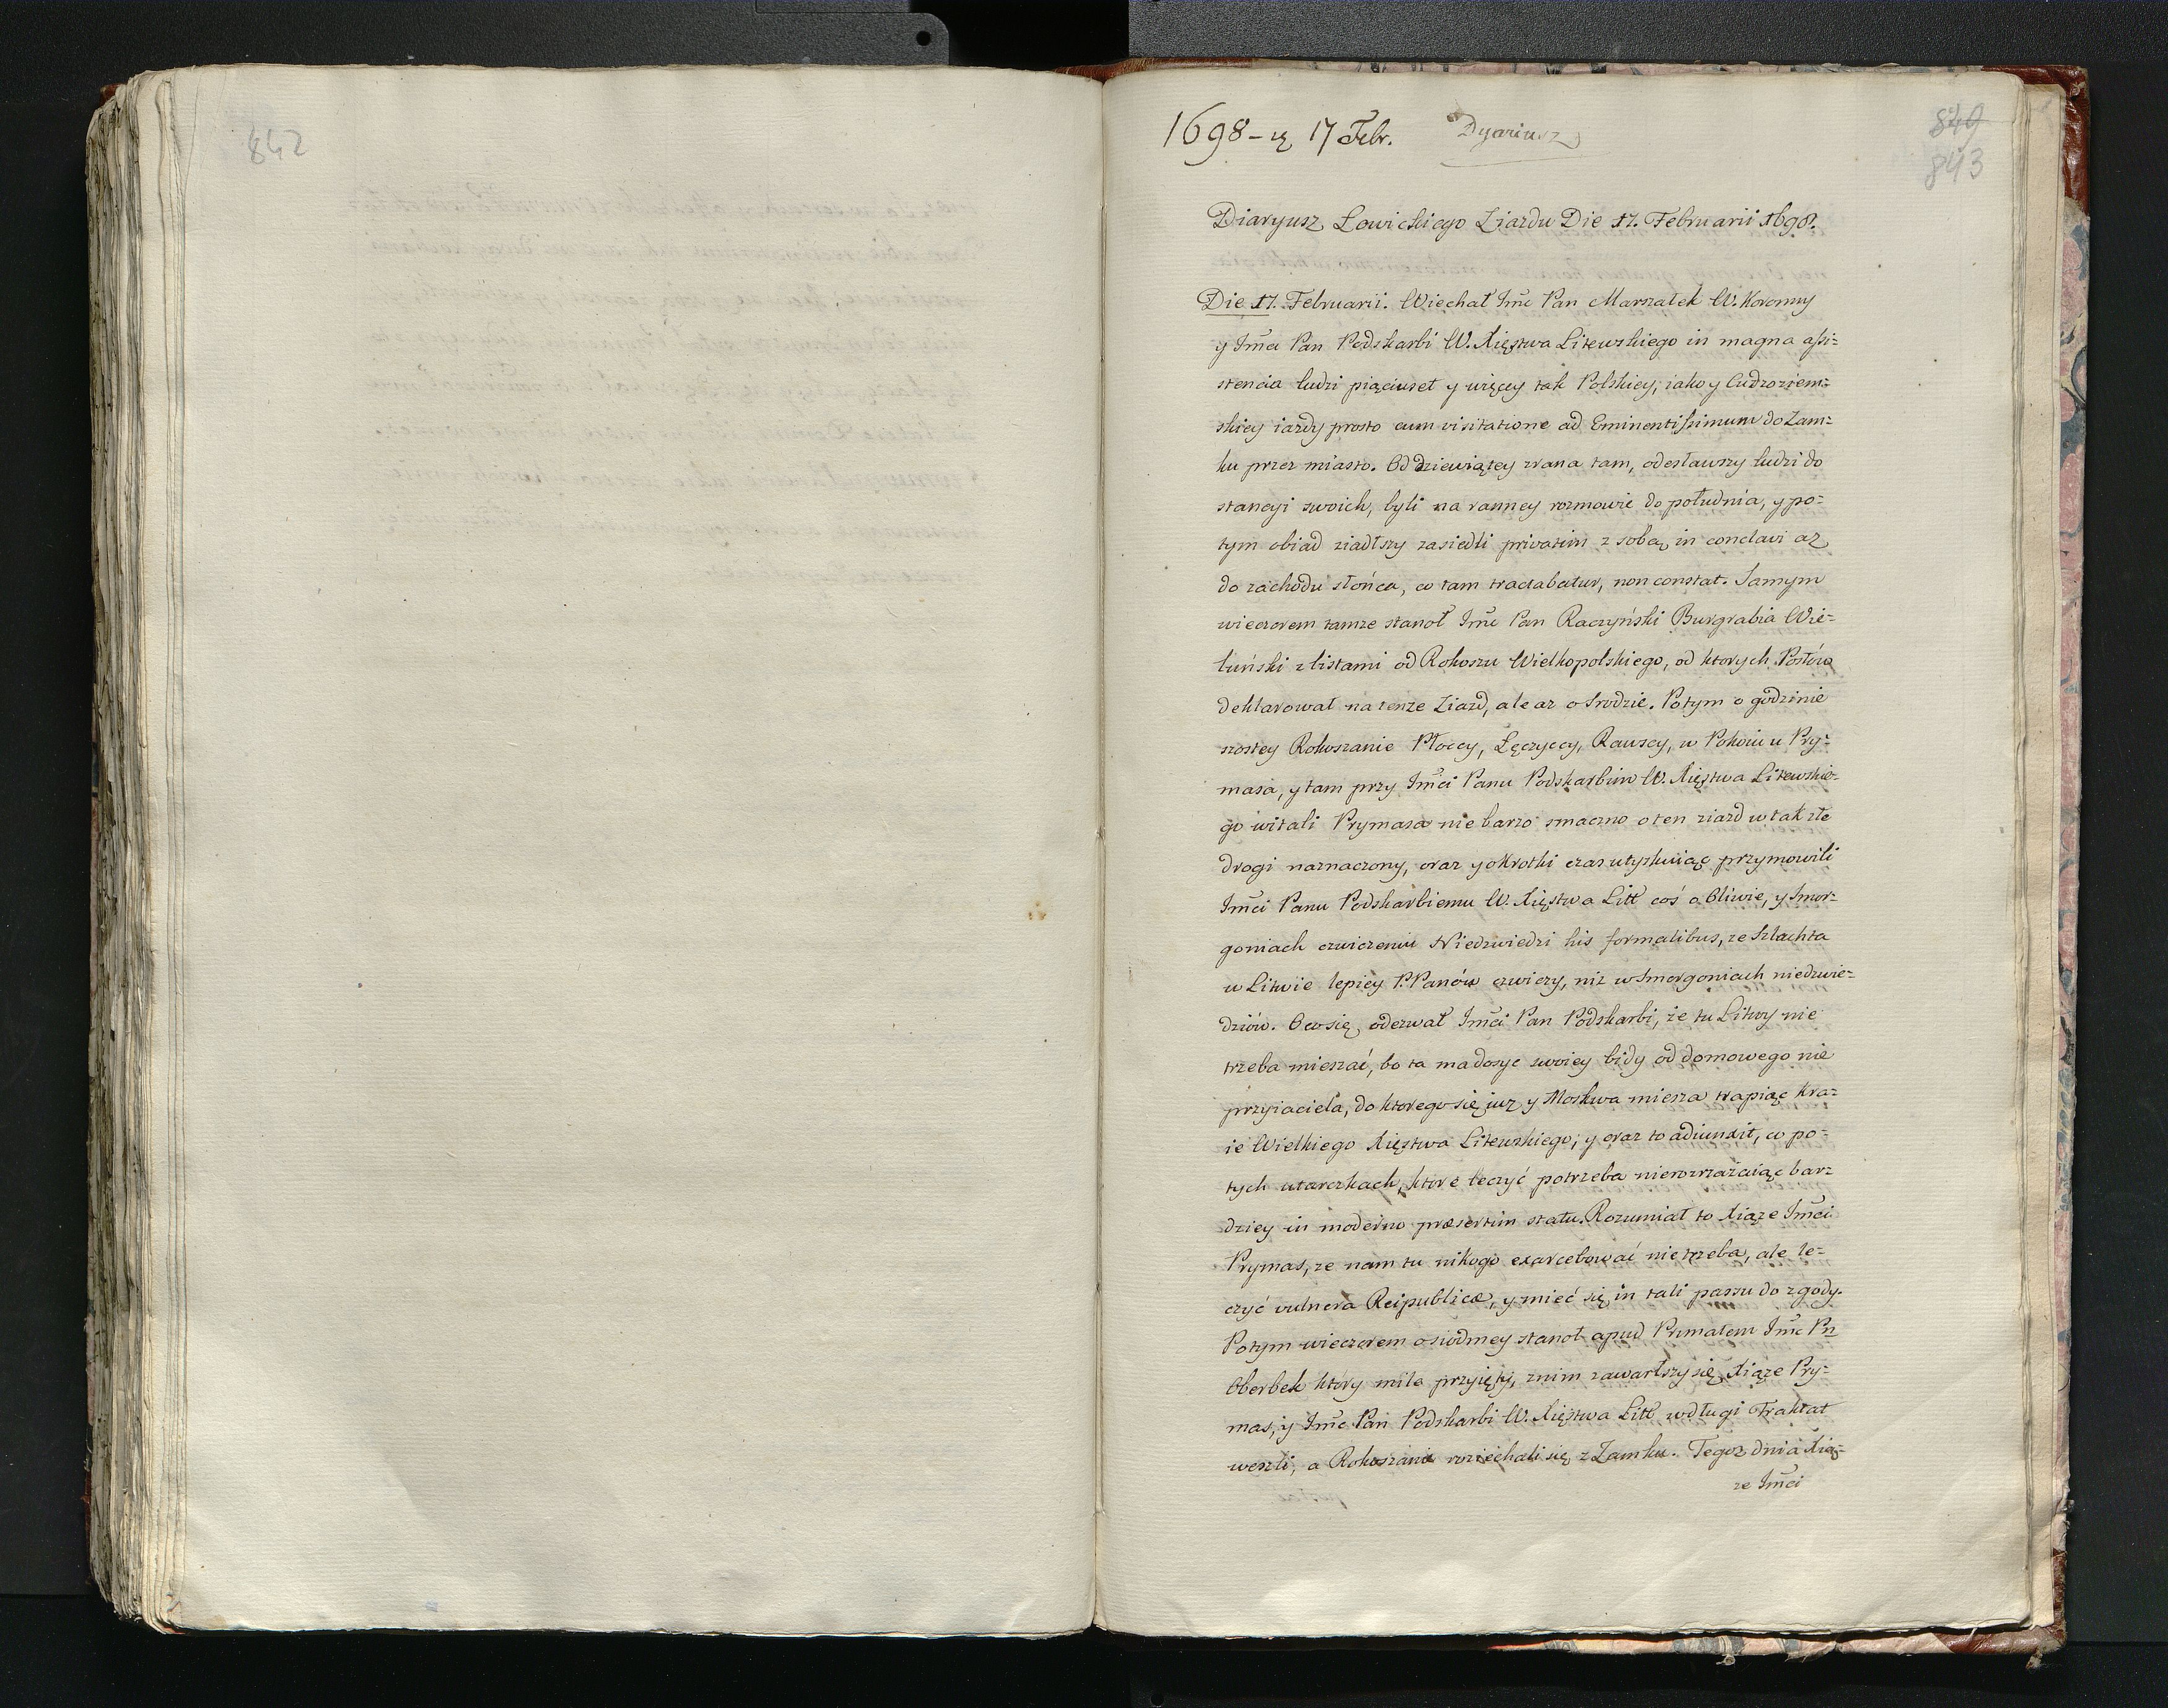 842
1698 - 17 Febr. Dyariusz
849
843
Diaryusz Lowickiego Ziazdu Die 17. Februarii 1698.
Die 17. Februarii. Wiechał Imć Pan Marszałek W. Koronny
y Imći Pan Podskarbi W. Xięstwa Litewskiego in magna assi-
stencia ludzi pięciuset y więcey tak Polskiey, iako y Cudzoziem-
skiey iazdy prosto cum visitatione ad Eminentissimum do Zam-
ku przez miasto. Od dziewiątey zrana tam, odesławszy ludzi do
stancyi swoich, byli na ranney rozmowie do południa, y po-
tym obiad ziadłszy zasiedli privatim z sobą in conclavi az
do zachodu słońca, co tam tractabatur, non constat. Samym
wieczorem tamze stanoł Imć Pan Raczyński Burgrabia Wie-
luński z listami od Rokoszu Wielkopolskiego, od ktorych Posłów
deklarował na tenze Ziazd, ale az o Srodzie. Potym o godzinie
szostey Rokoszanie Płoccy, Łęczyccy, Rawscy, w Pokoiu u Pry-
masa, y tam przy Imći Panu Podskarbim W. Xięstwa Litewskie-
go witali Prymasa nie barzo smaczno o ten ziazd w tak złe
drogi naznaczony, oraz y okrotki czas utyskuiąc przymowili
Imći Panu Podskarbiemu W. Xięstwa Litt coś o Oliwie, y Smor-
goniach czwiczeniu Niedzwiedzi his formalibus, ze Szlachta
w Litwie lepiey P. Panów czwiczy, niz w Smorgoniach niedzwie-
dziów. O co się odezwał Imći Pan Podskarbi, że tu Litwy nie
trzeba mieszać, bo ta ma dosyc swoiey bidy od domowego nie
przyiaciela, do ktorego się iuz y Moskwa miesza trapiąc Kra-
ie Wielkiego Xięstwa Litewskiego; y oraz to adiunxit, co po-
tych utarczkach, ktore leczyć potrzeba nierozrażaiąc bar-
dziey in moderno præsertim statu. Rozumiał to Xiąze Imći
Prymas, ze nam tu nikogo exarcebować nietrzeba, ale le-
czyć vulnera Reipublicæ, y mieć się in tali passu do zgody.
Potym wieczorem o siodmey stanoł apud Primatem Imć Pn
Oberbek ktory mile przyięty, z nim zawarłszy się Xiąze Pry-
mas, y Imć Pan Podskarbi W. Xięstwa Litt, w długi Traktat
weszli, a Rokoszanie roziechali się z Zamku. Tegoz dnia Xią-
ze Imći